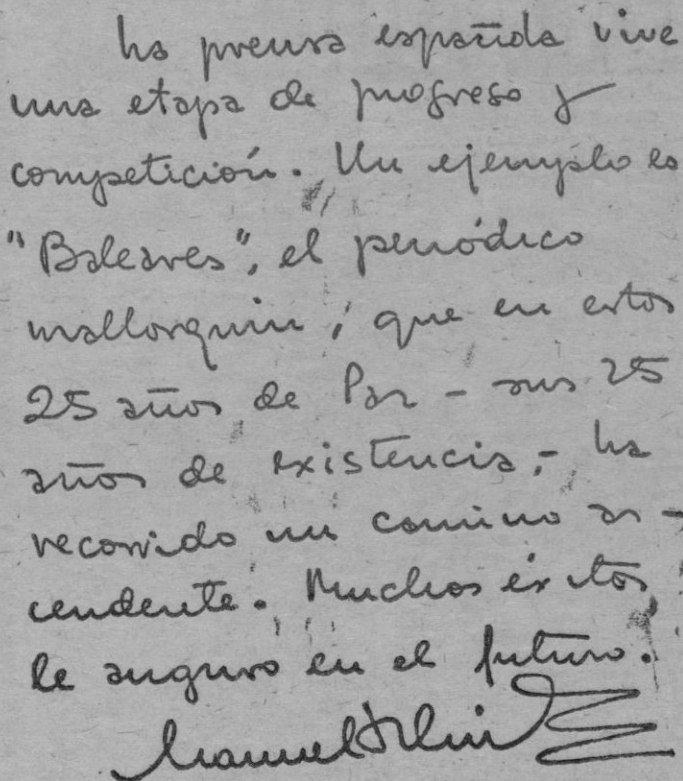 La prensa española vive
una etapa de progreso y
competición. Un ejemplo es
"Baleares", el periódico
mallorquin, que en estos
25 años de Paz - sus 25
años de existencia, - ha
recorrido un camino as-
cendente. Muchos éxitos
le auguro en el futuro.
Manuel